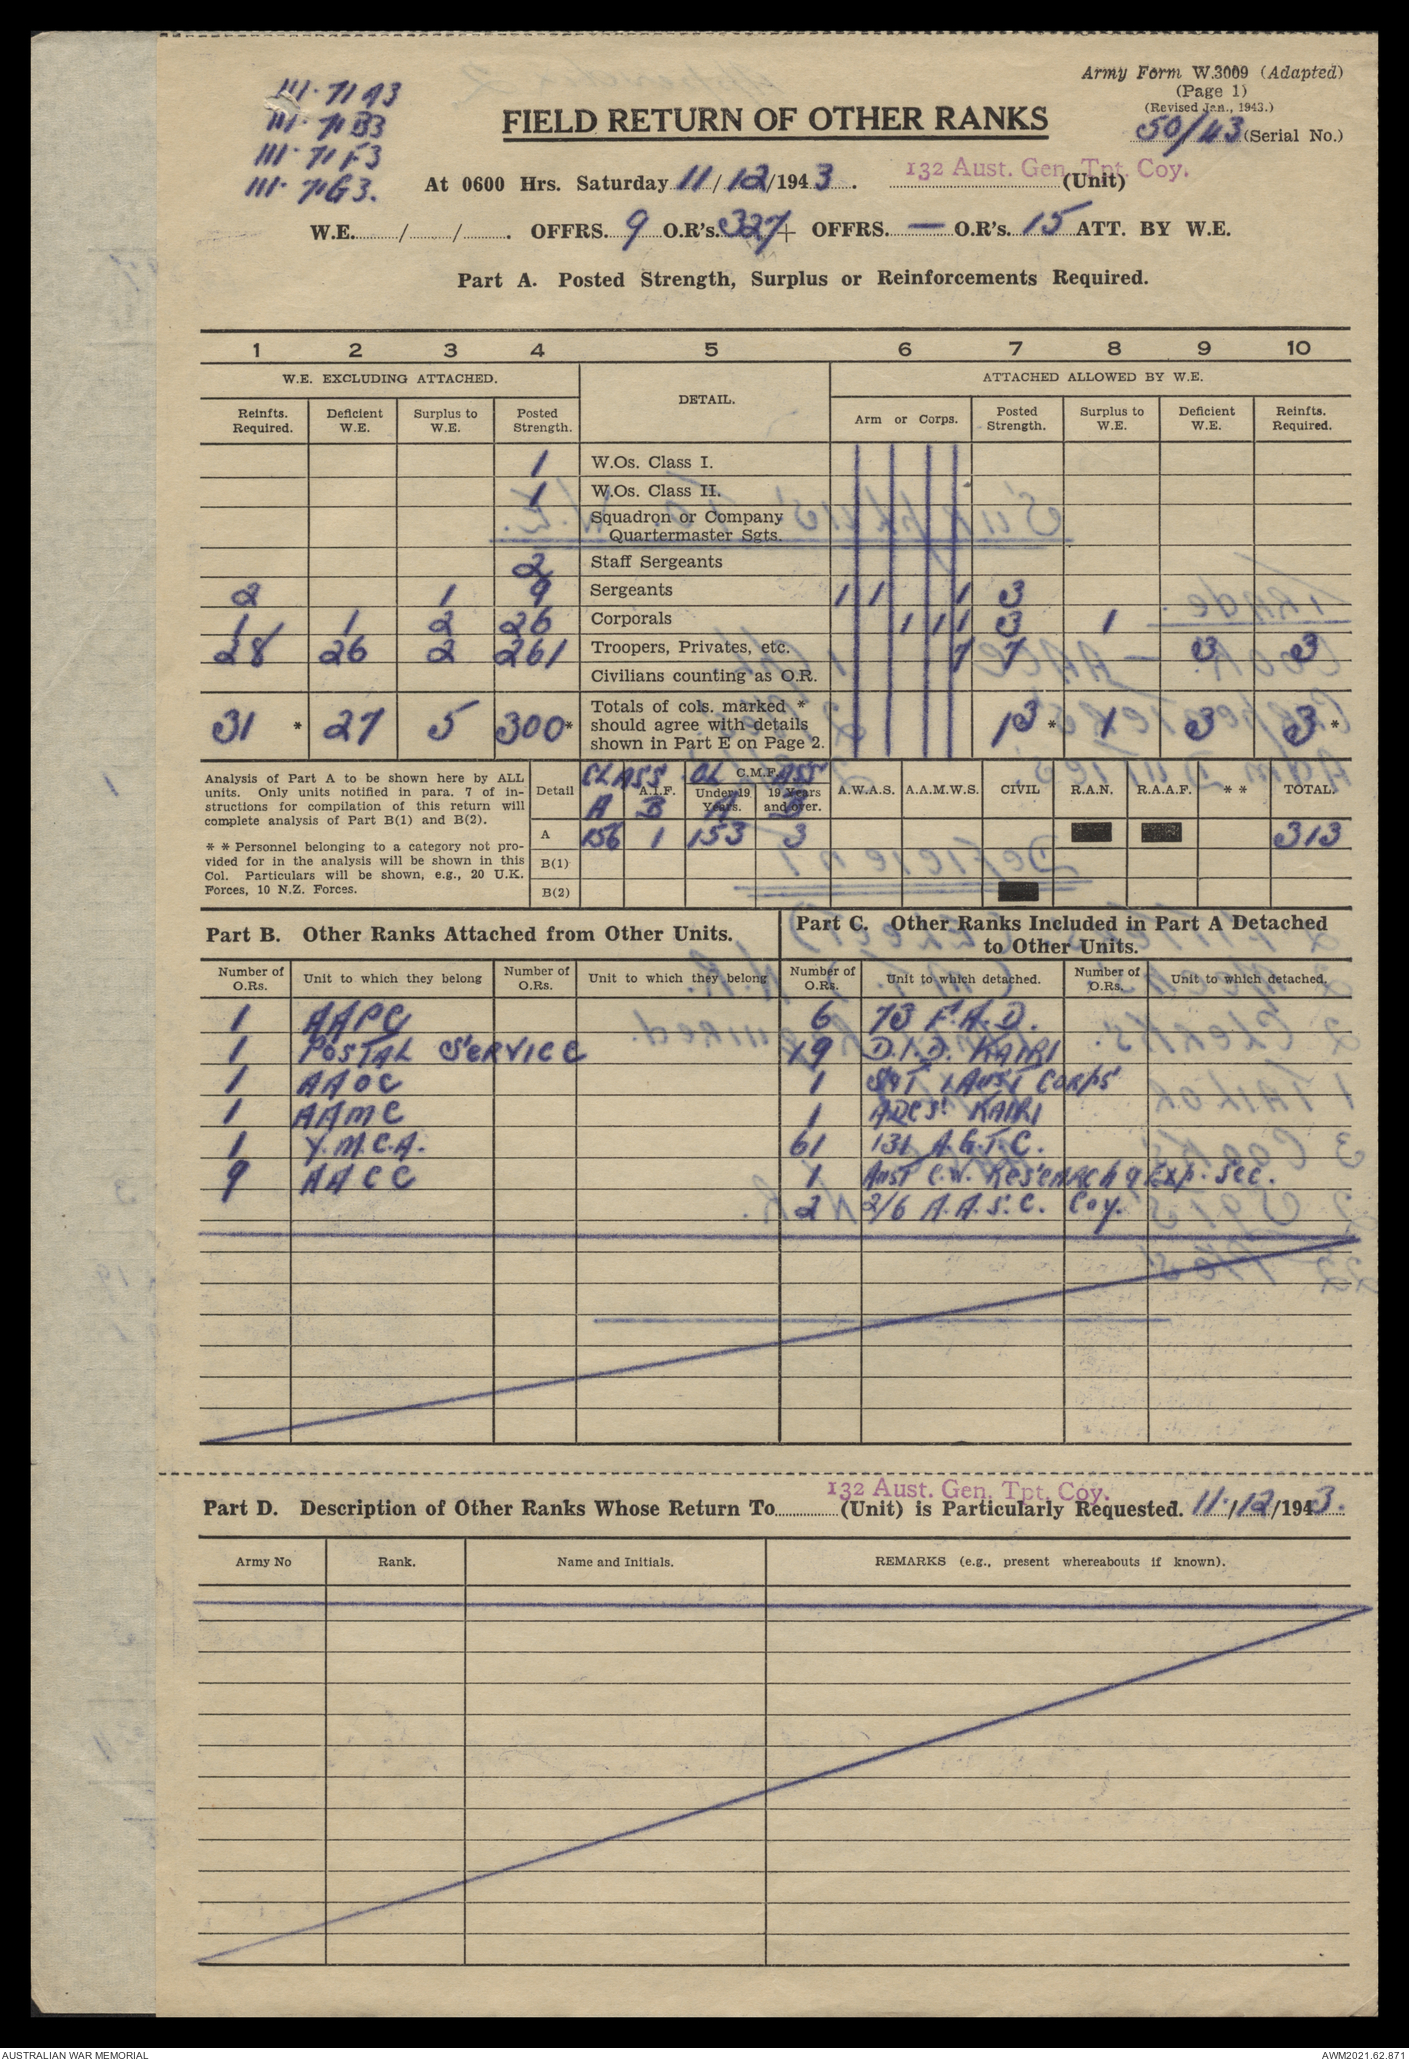 Army Form W.3009 (Adapted)
(Page 1)
(Revised Jan., 1943.)
50/43 (Serial No.)
111·71 A3
111·71 B3
111·71 F3
111·71 G3.
FIELD RETURN OF OTHER RANKS
At 0600 Hrs. Saturday 11/12/1943. 132 Aust. Gen. Tpt. Coy. (Unit)
W.E. / / . OFFRS. 9 O.R's. 327 + OFFRS. — O.R's. 15 ATT. BY W.E.
Part A. Posted Strength, Surplus or Reinforcements Required.
1 2 3 4 5 6 7 8 9 10
W.E. EXCLUDING ATTACHED. DETAIL. ATTACHED ALLOWED BY W.E.
Reinfts. Required. Deficient W.E. Surplus to W.E. Posted Strength. Arm or Corps. Posted Strength. Surplus to W.E. Deficient W.E. Reinfts. Required.
1 W.Os. Class I.
1 W.Os. Class II.
Squadron or Company
Quartermaster Sgts.
2 Staff Sergeants
2 1 9 Sergeants 1 1 1 3
1 1 2 26 Corporals 1 1 1 3 1
28 26 2 261 Troopers, Privates, etc. 7 7 3 3
Civilians counting as O.R.
31 * 27 5 300 * Totals of cols. marked * should agree with details shown in Part E on Page 2. 13 * 1 3 3 *
Analysis of Part A to be shown here by ALL
units. Only units notified in para. 7 of in-
structions for compilation of this return will
complete analysis of Part B(1) and B(2).
* * Personnel belonging to a category not pro-
vided for in the analysis will be shown in this
Col. Particulars will be shown, e.g., 20 U.K.
Forces, 10 N.Z. Forces.
CLASS CLASS
Detail A.I.F. C.M.F. Under 19 Years. 19 Years and over. A.W.A.S. A.A.M.W.S. CIVIL R.A.N. R.A.A.F. * * TOTAL.
A B A B
A 156 1 153 3 313
B(1)
B(2)
Part B. Other Ranks Attached from Other Units.
Number of O.Rs. Unit to which they belong Number of O.Rs. Unit to which they belong
1 AAPC
1 POSTAL SERVICE
1 AAOC
1 AAMC
1 Y.M.C.A.
9 AACC
Part C. Other Ranks Included in Part A Detached
to Other Units.
Number of O.Rs. Unit to which detached. Number of O.Rs. Unit to which detached.
6 73 F.A.D.
19 D.I.D. KAIRI
1 1 Aust Corps
1 KAIRI
61 131 A.G.T.C.
1 Aust C.W. Research & Exp. Sec.
2 2/6 A.A.S.C. Coy.
Part D. Description of Other Ranks Whose Return To 132 Aust. Gen. Tpt. Coy. (Unit) is Particularly Requested. 11/12/1943.
Army No Rank. Name and Initials. REMARKS (e.g., present whereabouts if known).
AUSTRALIAN WAR MEMORIAL
AWM2021.62.871